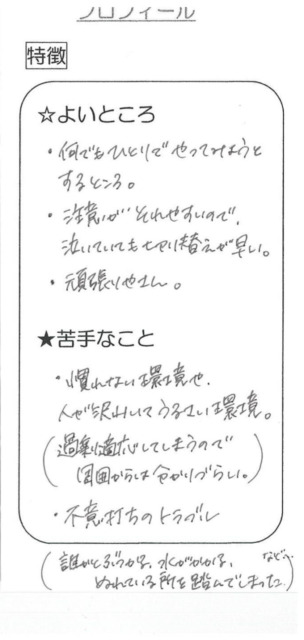 プロフィール
特徴
☆よいところ
・何でもひとりでやってみようと
するところ。
・注意がそれやすいので、
泣いていても切り替えが早い。
・頑張りやさん。
★苦手なこと
・慣れない環境や、
人が沢山いてうるさい環境。
(過剰適応してしまうので
周囲からは分かりづらい。)
・不意打ちのトラブル
(誰かとぶつかる、水がかかる、
ぬれている所を踏んでしまった など…)